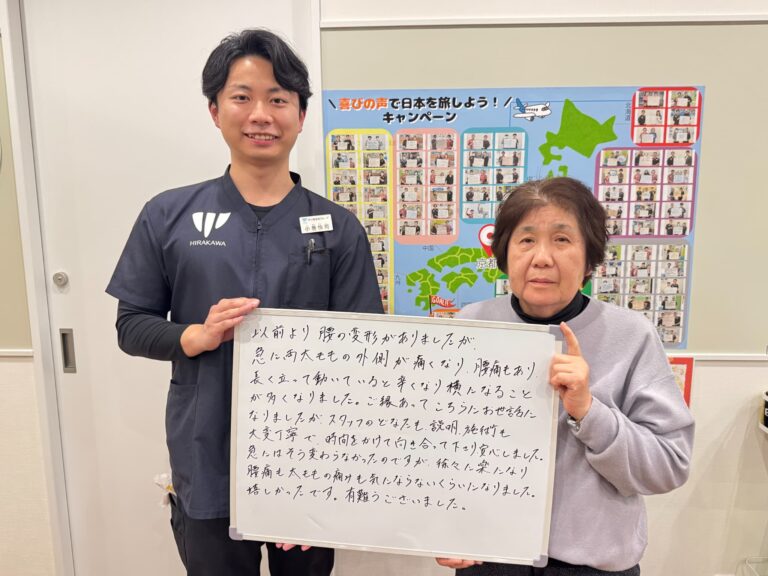 \喜びの声で日本を旅しよう！/
キャンペーン
北海道
中国
九州
京都
GOAL
HIRAKAWA
以前より腰の変形がありましたが
急に両太ももの外側が痛くなり、腰痛もあり
長く立って動いていると辛くなり横になること
が多くなりました。ご縁あってこちらにお世話に
なりましたが、スタッフのどなたも説明、施術も
大変丁寧で、時間をかけて向き合って下さり安心しました。
急にはそう変わらなかったのですが、徐々に楽になり
腰痛も太ももの痛みも気にならないくらいになりました。
嬉しかったです。有難うございました。